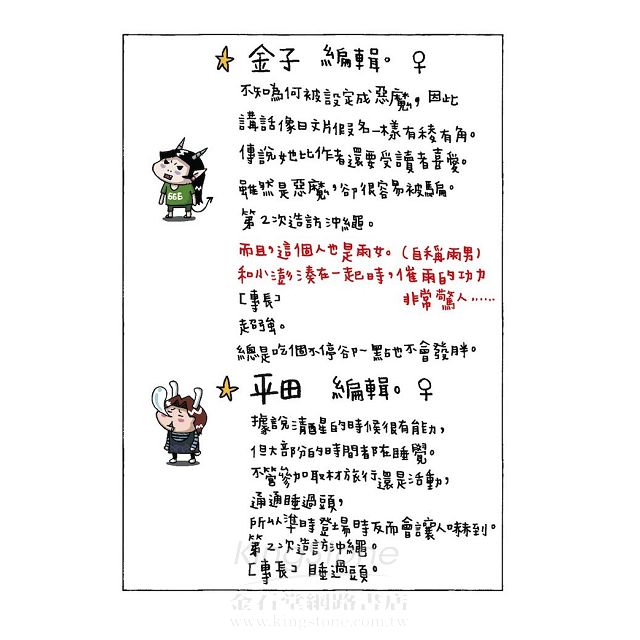 金子 編輯。♀
不知為何被設定成惡魔，因此
講話像日文片假名一樣有稜有角。
傳說她比作者還要受讀者喜愛。
雖然是惡魔，卻很容易被騙。
第2次造訪沖繩。
而且，這個人也是雨女。（自稱雨男）
和小澎湊在一起時，催雨的功力
非常驚人……
[專長]
超強。
總是吃個不停卻一點也不會發胖。
平田 編輯。♀
據說清醒的時候很有能力，
但大部分的時間都在睡覺。
不管參加取材旅行還是活動，
通通睡過頭，
所以準時登場時反而會讓人嚇到。
第2次造訪沖繩。
[專長] 睡過頭。
666
Kingstone
金石堂網路書店
www.kingstone.com.tw